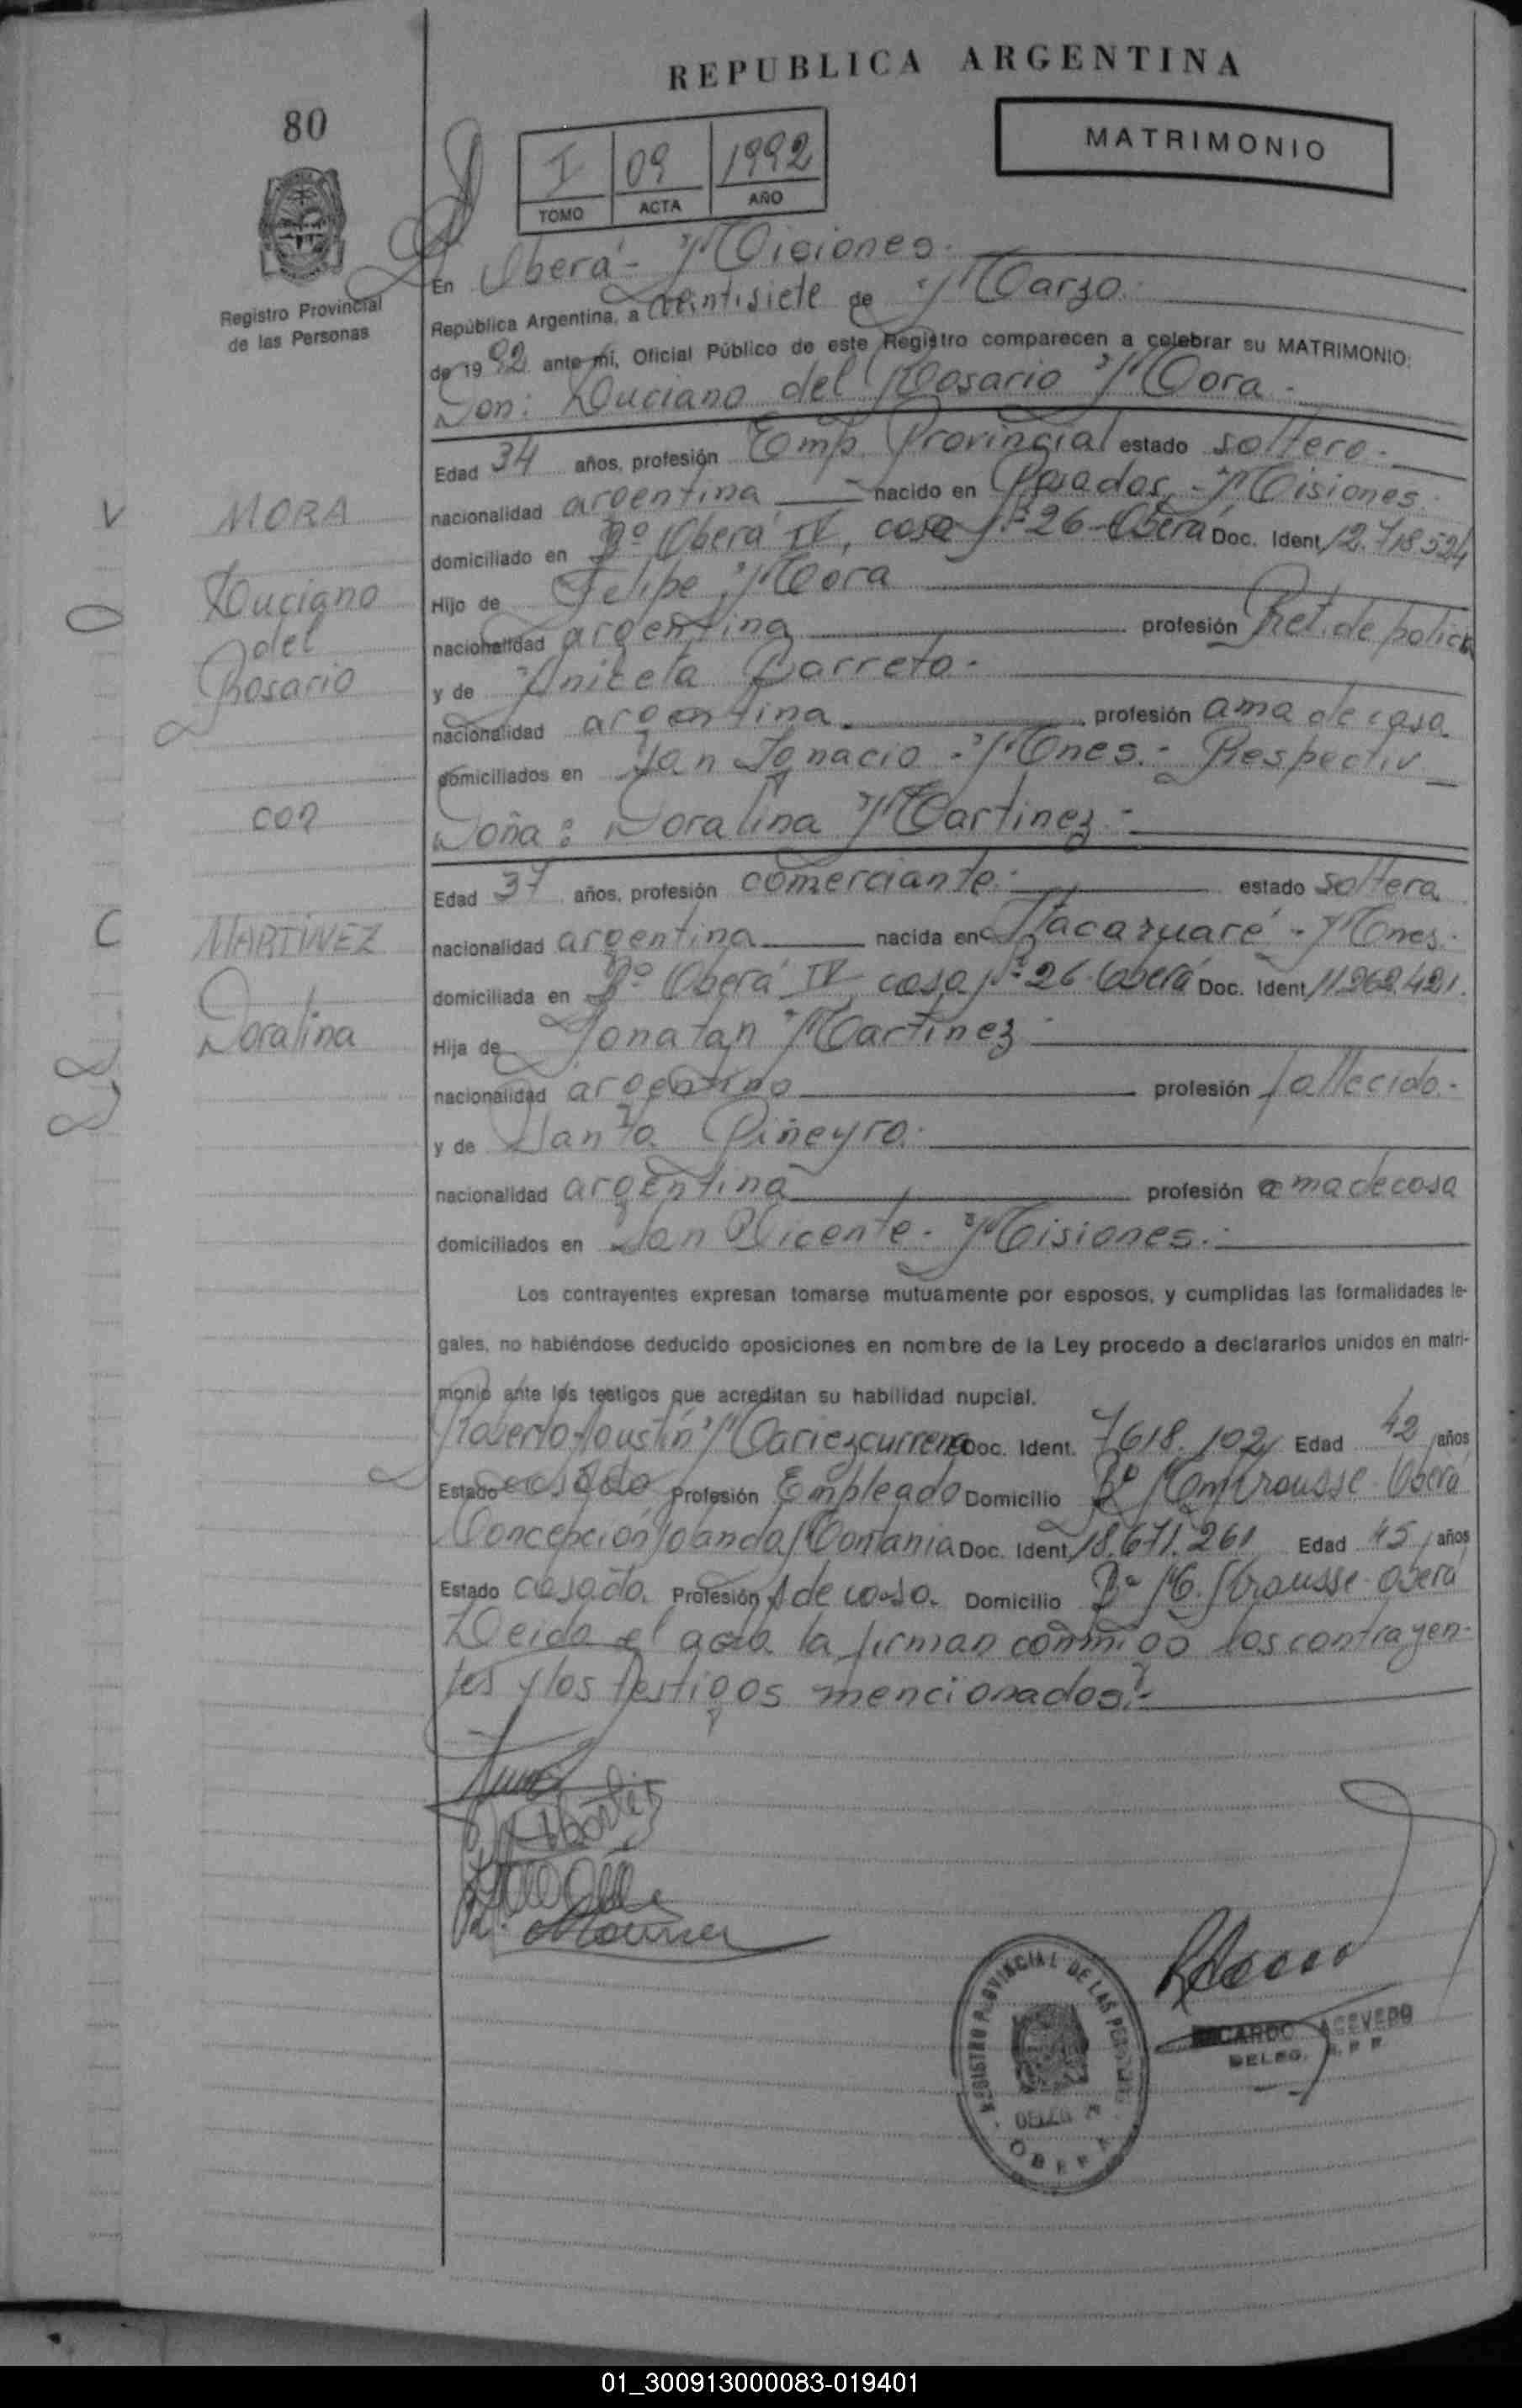 REPUBLICA ARGENTINA
80
I 09 1992
TOMO ACTA AÑO
MATRIMONIO
Registro Provincial
de las Personas
En Oberá - Misiones.
República Argentina, a veintisiete de Marzo.
de 1992 ante mí, Oficial Público de este Registro comparecen a celebrar su MATRIMONIO:
Don: Luciano del Rosario Mora.-
Edad 34 años, profesión Emp. Provincial estado soltero.-
nacionalidad argentina nacido en Posadas, - Misiones.
domiciliado en Bº Oberá IV, casa Nº 26 - Oberá Doc. Ident. 12.718.524
Hijo de Felipe Mora
nacionalidad argentina profesión Ret. de policía
y de Aniceta Barreto.-
nacionalidad argentina. profesión ama de casa
domiciliados en San Ignacio - Mnes.- Respectiv
Doña: Doralina Martinez.-
Edad 37 años, profesión comerciante.- estado soltera
nacionalidad argentina nacida en Itacaruaré - Mnes.-
domiciliada en Bº Oberá IV casa Nº 26 Oberá Doc. Ident. 11.262.421.
Hija de Jonatan Martinez
nacionalidad argentino profesión fallecido.-
y de Santa Piñeyro.
nacionalidad argentina profesión ama de casa
domiciliados en San Vicente - Misiones.-
Los contrayentes expresan tomarse mutuamente por esposos, y cumplidas las formalidades le-
gales, no habiéndose deducido oposiciones en nombre de la Ley procedo a declararlos unidos en matri-
monio ante los testigos que acreditan su habilidad nupcial.
Roberto Agustín Mariezcurrena Doc. Ident. 7.618.102 Edad 42 años
Estado casado Profesión Empleado Domicilio Bº Oberá
Concepción Doc. Ident. 18.671.261 Edad 45 años
Estado casada. Profesión A de casa. Domicilio Bº Oberá
Leida el acta la firman conmigo los contrayen-
tes y los testigos mencionados.-
V MORA
Luciano
del
Rosario
con
C MARTINEZ
Doralina
REGISTRO PROVINCIAL DE LAS PERSONAS
DELEG.
OBERA
RICARDO ACEVEDO
DELEG. R. P. P.
01_300913000083-019401